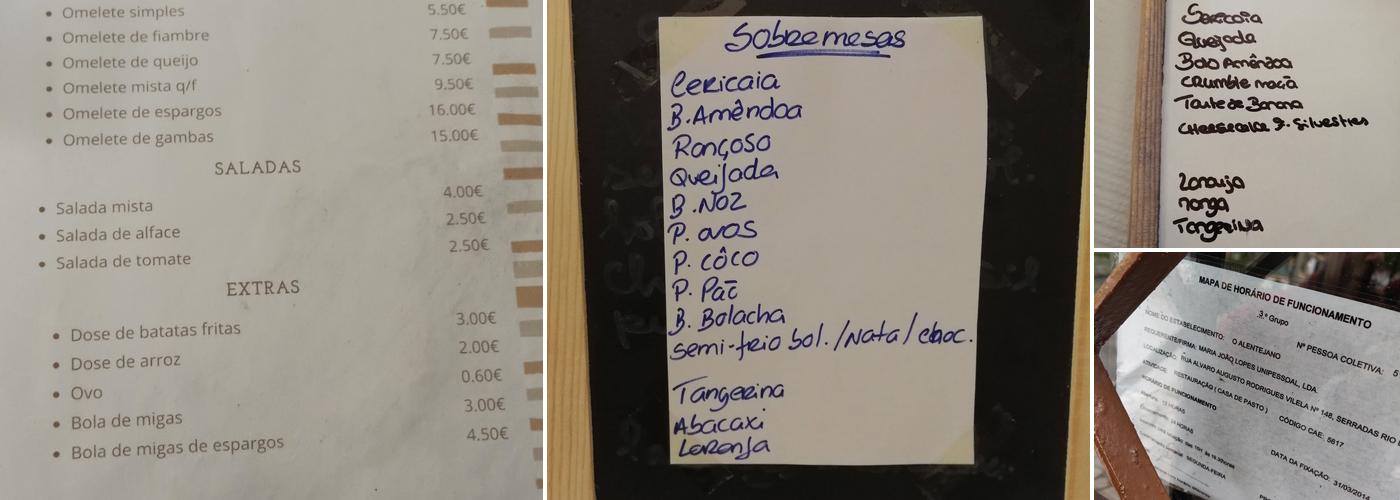 Omelete simples 5.50€
Omelete de fiambre 7.50€
Omelete de queijo 7.50€
Omelete mista q/f 9.50€
Omelete de espargos 16.00€
Omelete de gambas 15.00€
SALADAS
Salada mista 4.00€
Salada de alface 2.50€
Salada de tomate 2.50€
EXTRAS
Dose de batatas fritas 3.00€
Dose de arroz 2.00€
Ovo 0.60€
Bola de migas 3.00€
Bola de migas de espargos 4.50€
Sobremesas
Cericaia
B. Amêndoa
Rançoso
Queijada
B. Noz
P. ovos
P. côco
P. Paĩ
B. Bolacha
semi-frio bol. /Nata/ choc.
Tangerina
Abacaxi
Laranja
Sericaia
Queijada
Bolo Amêndoa
Crumble maçã
Tarte de Banana
Cheesecake F. Silvestres
Laranja
Manga
Tangerina
MAPA DE HORÁRIO DE FUNCIONAMENTO
3.º Grupo
NOME DO ESTABELECIMENTO: O ALENTEJANO Nº PESSOA COLETIVA: 5
REQUERENTE/FIRMA: MARIA JOÃO LOPES UNIPESSOAL, LDA.
LOCALIZAÇÃO: RUA ALVARO AUGUSTO RODRIGUES VILELA Nº 148, SERRADAS RIO
ATIVIDADE: RESTAURAÇÃO ( CASA DE PASTO ) CÓDIGO CAE: 5617
HORÁRIO DE FUNCIONAMENTO
HORAS
HORAS
SEGUNDA-FEIRA
DATA DA FIXAÇÃO: 31/03/2014